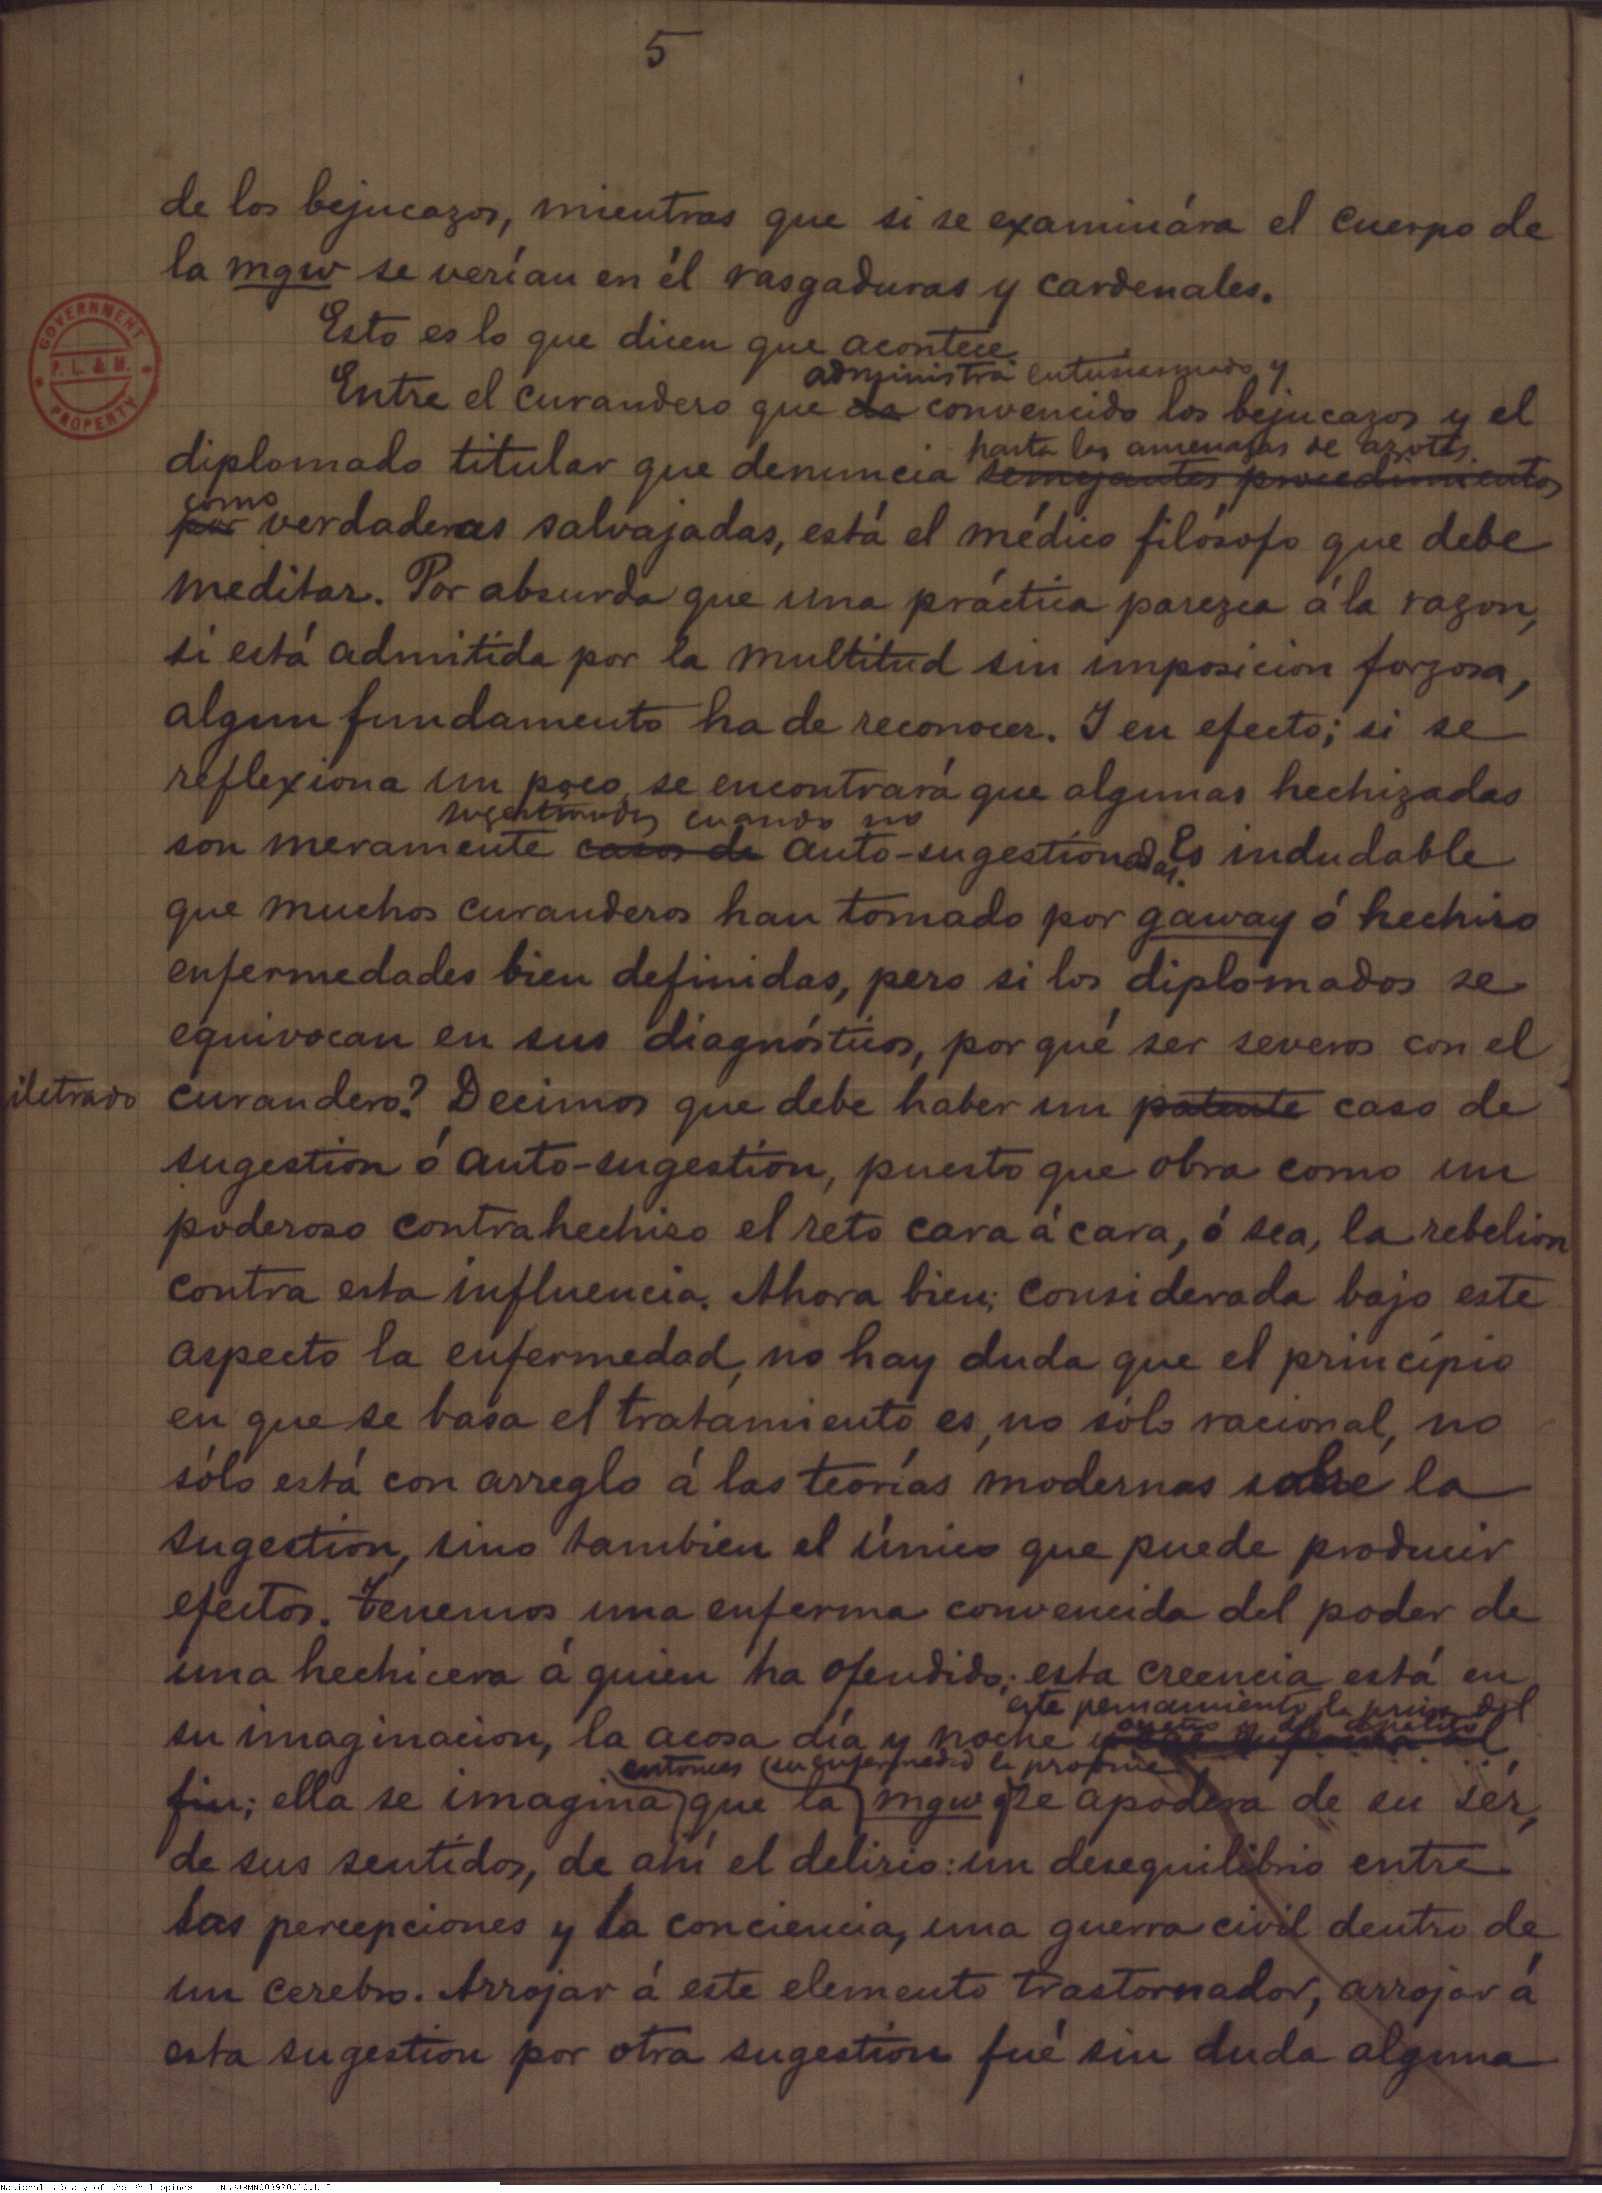 5
de los bejucazos, mientras que si se examinára el cuerpo de
la mgw se verían en él rasgaduras y cardenales.
Esto es lo que dicen que acontece
administra entusiasmado y
Entre el curandero que da convencido los bejucazos y el
hasta las amenazas de azotes
diplomado titular que denuncia semejantes procedimientos
como
por verdaderas salvajadas, está el médico filósofo que debe
meditar. Por absurda que una práctica parezca á la razon,
si está admitida por la multitud sin imposicion forzosa,
algun fundamento ha de reconocer. Y en efecto; si se
reflexiona un poco, se encontrará que algunas hechizadas
sugestionadas cuando no
son meramente casos de auto-sugestionadas. Es indudable
que muchos curanderos han tomado por gaway ó hechizo
enfermedades bien definidas, pero si los diplomados se
equivocan en sus diagnósticos, por qué ser severos con el
iletrado curandero? Decimos que debe haber un patente caso de
sugestion ó auto-sugestion, puesto que obra como un
poderoso contrahechizo el reto cara á cara, ó sea, la rebelion
contra esta influencia. Ahora bien; considerada bajo este
aspecto la enfermedad, no hay duda que el principio
en que se basa el tratamiento es, no sólo racional, no
sólo está con arreglo á las teorías modernas sobre la
sugestion, sino tambien el único que puede producir
efectos. Tenemos una enferma convencida del poder de
una hechicera á quien ha ofendido; esta creencia está en
este pensamiento la priva del
sueño y del apetito
su imaginacion, la acosa día y noche
entonces (su enfermedad la
fin; ella se imagina que la mgw se apodera de su sér,
de sus sentidos, de ahí el delirio: un desequilibrio entre
las percepciones y la conciencia, una guerra civil dentro de
un cerebro. Arrojar á este elemento trastornador, arrojar á
esta sugestion por otra sugestion fué sin duda alguna
GOVERNMENT
P. L. & M.
PROPERTY
National Library of the Philippines